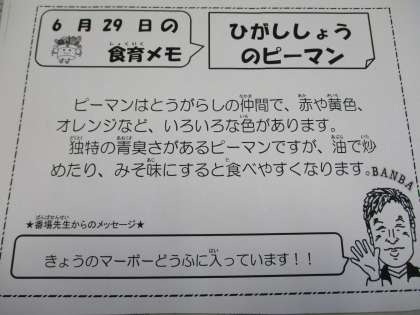 6月29日の
食育メモ
ひがししょう
のピーマン
ピーマンはとうがらしの仲間で、赤や黄色、
オレンジなど、いろいろな色があります。
独特の青臭さがあるピーマンですが、油で炒
めたり、みそ味にすると食べやすくなります。
BANBA
★番場先生からのメッセージ★
きょうのマーボーどうふに入っています！！